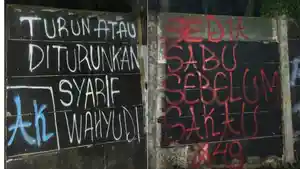 TURUN ATAU
DITURUNKAN
SYARIF
WAHYUDI
AK
SEDU
SABU
SEBELUM
SAKAU